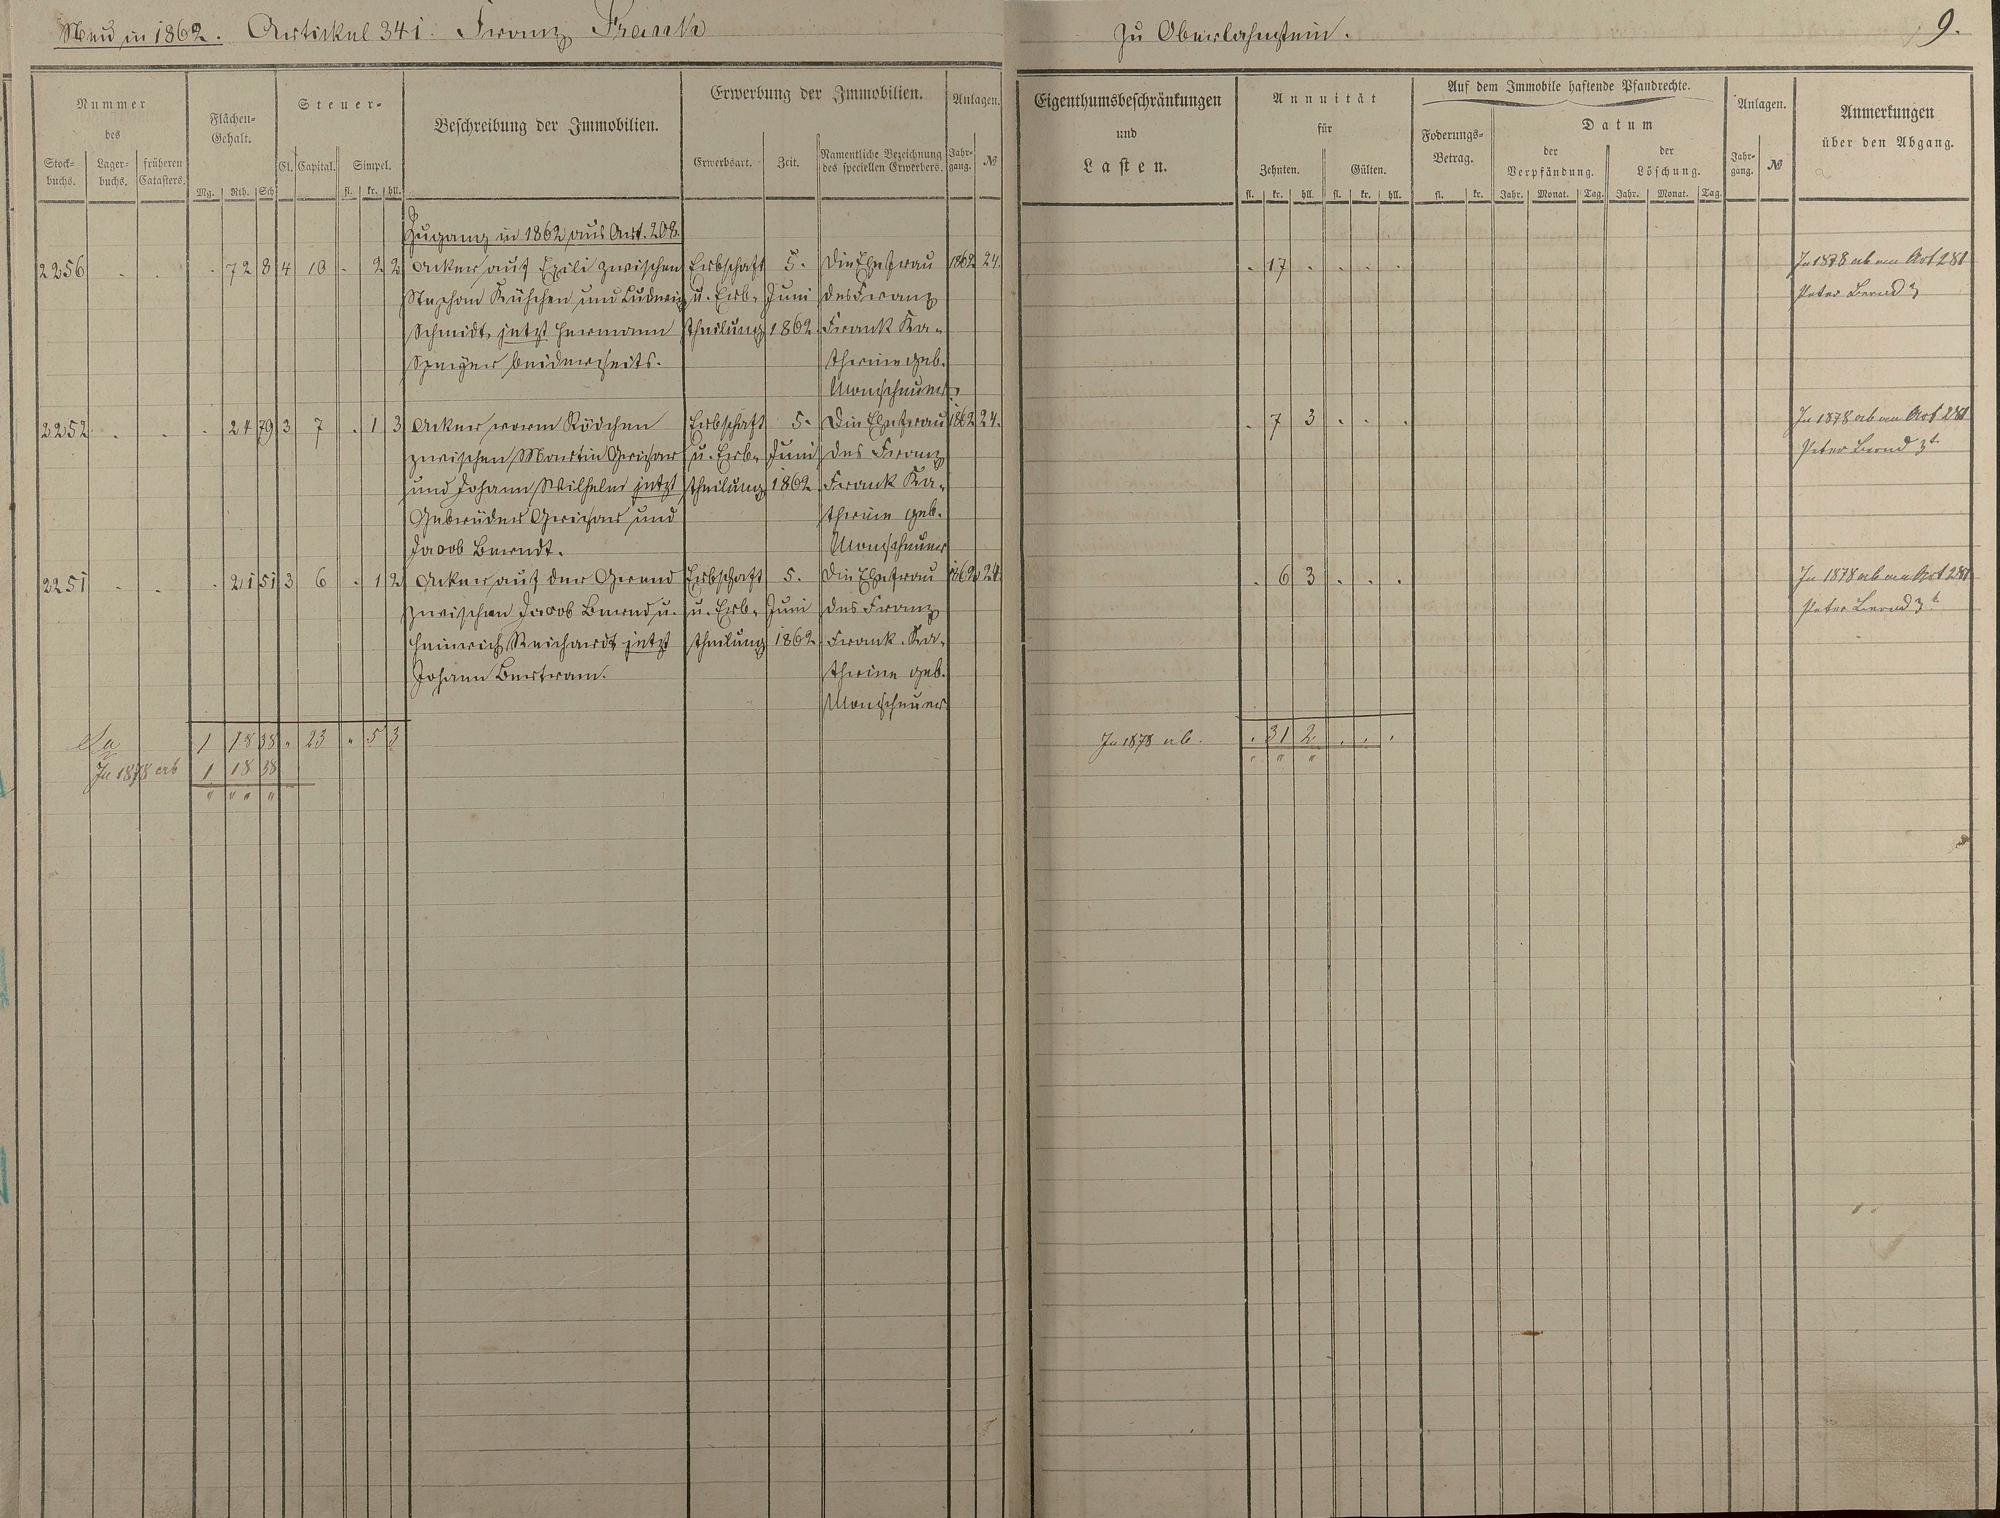 Neu in 1862. Artikel 341. Franz Frank
zu Oberlahnstein.
9.
Nummer
des
Stock-
buchs.
Lager-
buchs.
früheren
Catasters.
Flächen-
Gehalt.
Mg. Rth. Sch
Steuer-
Cl. Capital. Simpel.
fl. kr. hll.
Beschreibung der Immobilien.
Erwerbung der Immobilien.
Erwerbsart. Zeit.
Namentliche Bezeichnung
des speciellen Erwerbers.
Anlagen.
Jahr-
gang. №
Eigenthumsbeschränkungen
und
Lasten.
Annuität
für
Zehnten. Gülten.
fl. kr. hll. fl. kr. hll.
Auf dem Immobile haftende Pfandrechte.
Foderungs-
Betrag.
fl. kr.
Datum
der
Verpfändung.
der
Löschung.
Jahr. Monat. Tag. Jahr. Monat. Tag.
Anlagen.
Jahr-
gang. №
Anmerkungen
über den Abgang.
Zugang in 1862 aus Art. 208.
2256 . . . 72 8 4 10 . 2 2 Acker auf zwischen Erbschaft 5. Die Ehefrau 1862 24. . 17 . . . . In 1878 ab an Art 281
und Ludwig u. Erb- Juni des Franz Peter Bernd 3
Schmidt jetzt Hermann theilung 1862. Frank Ka-
Speyer beiderseits. therine geb.
Monschauer.
2252 . . . 24 79 3 7 . 1 3 Acker vorm Rödchen Erbschaft 5. Die Ehefrau 1862 24. . 7 3 . . . In 1878 ab an Art 281
zwischen Martin u. Erb- Juni des Franz Peter Bernd 3t
und Johann Wilhelm jetzt theilung 1862 Frank Ka-
Gebrüder und therine geb.
Jacob Berndt. Monschauer
2251 . . . 21 51 3 6 . 1 2 Acker auf der Erbschaft 5. Die Ehefrau 1862 24. . 6 3 . . . In 1878 ab an Art 281
zwischen Jacob Bernd u. u. Erb- Juni des Franz Peter Bernd 3t
Heinrich Reichardt jetzt theilung 1862. Frank Ka-
Johann Bertram. therine geb.
Monschauer
Sa 1 18 38 " 23 " 5 3 In 1878 ab. . 31 2 . . .
In 1878 ab 1 18 38 " " "
" " " "